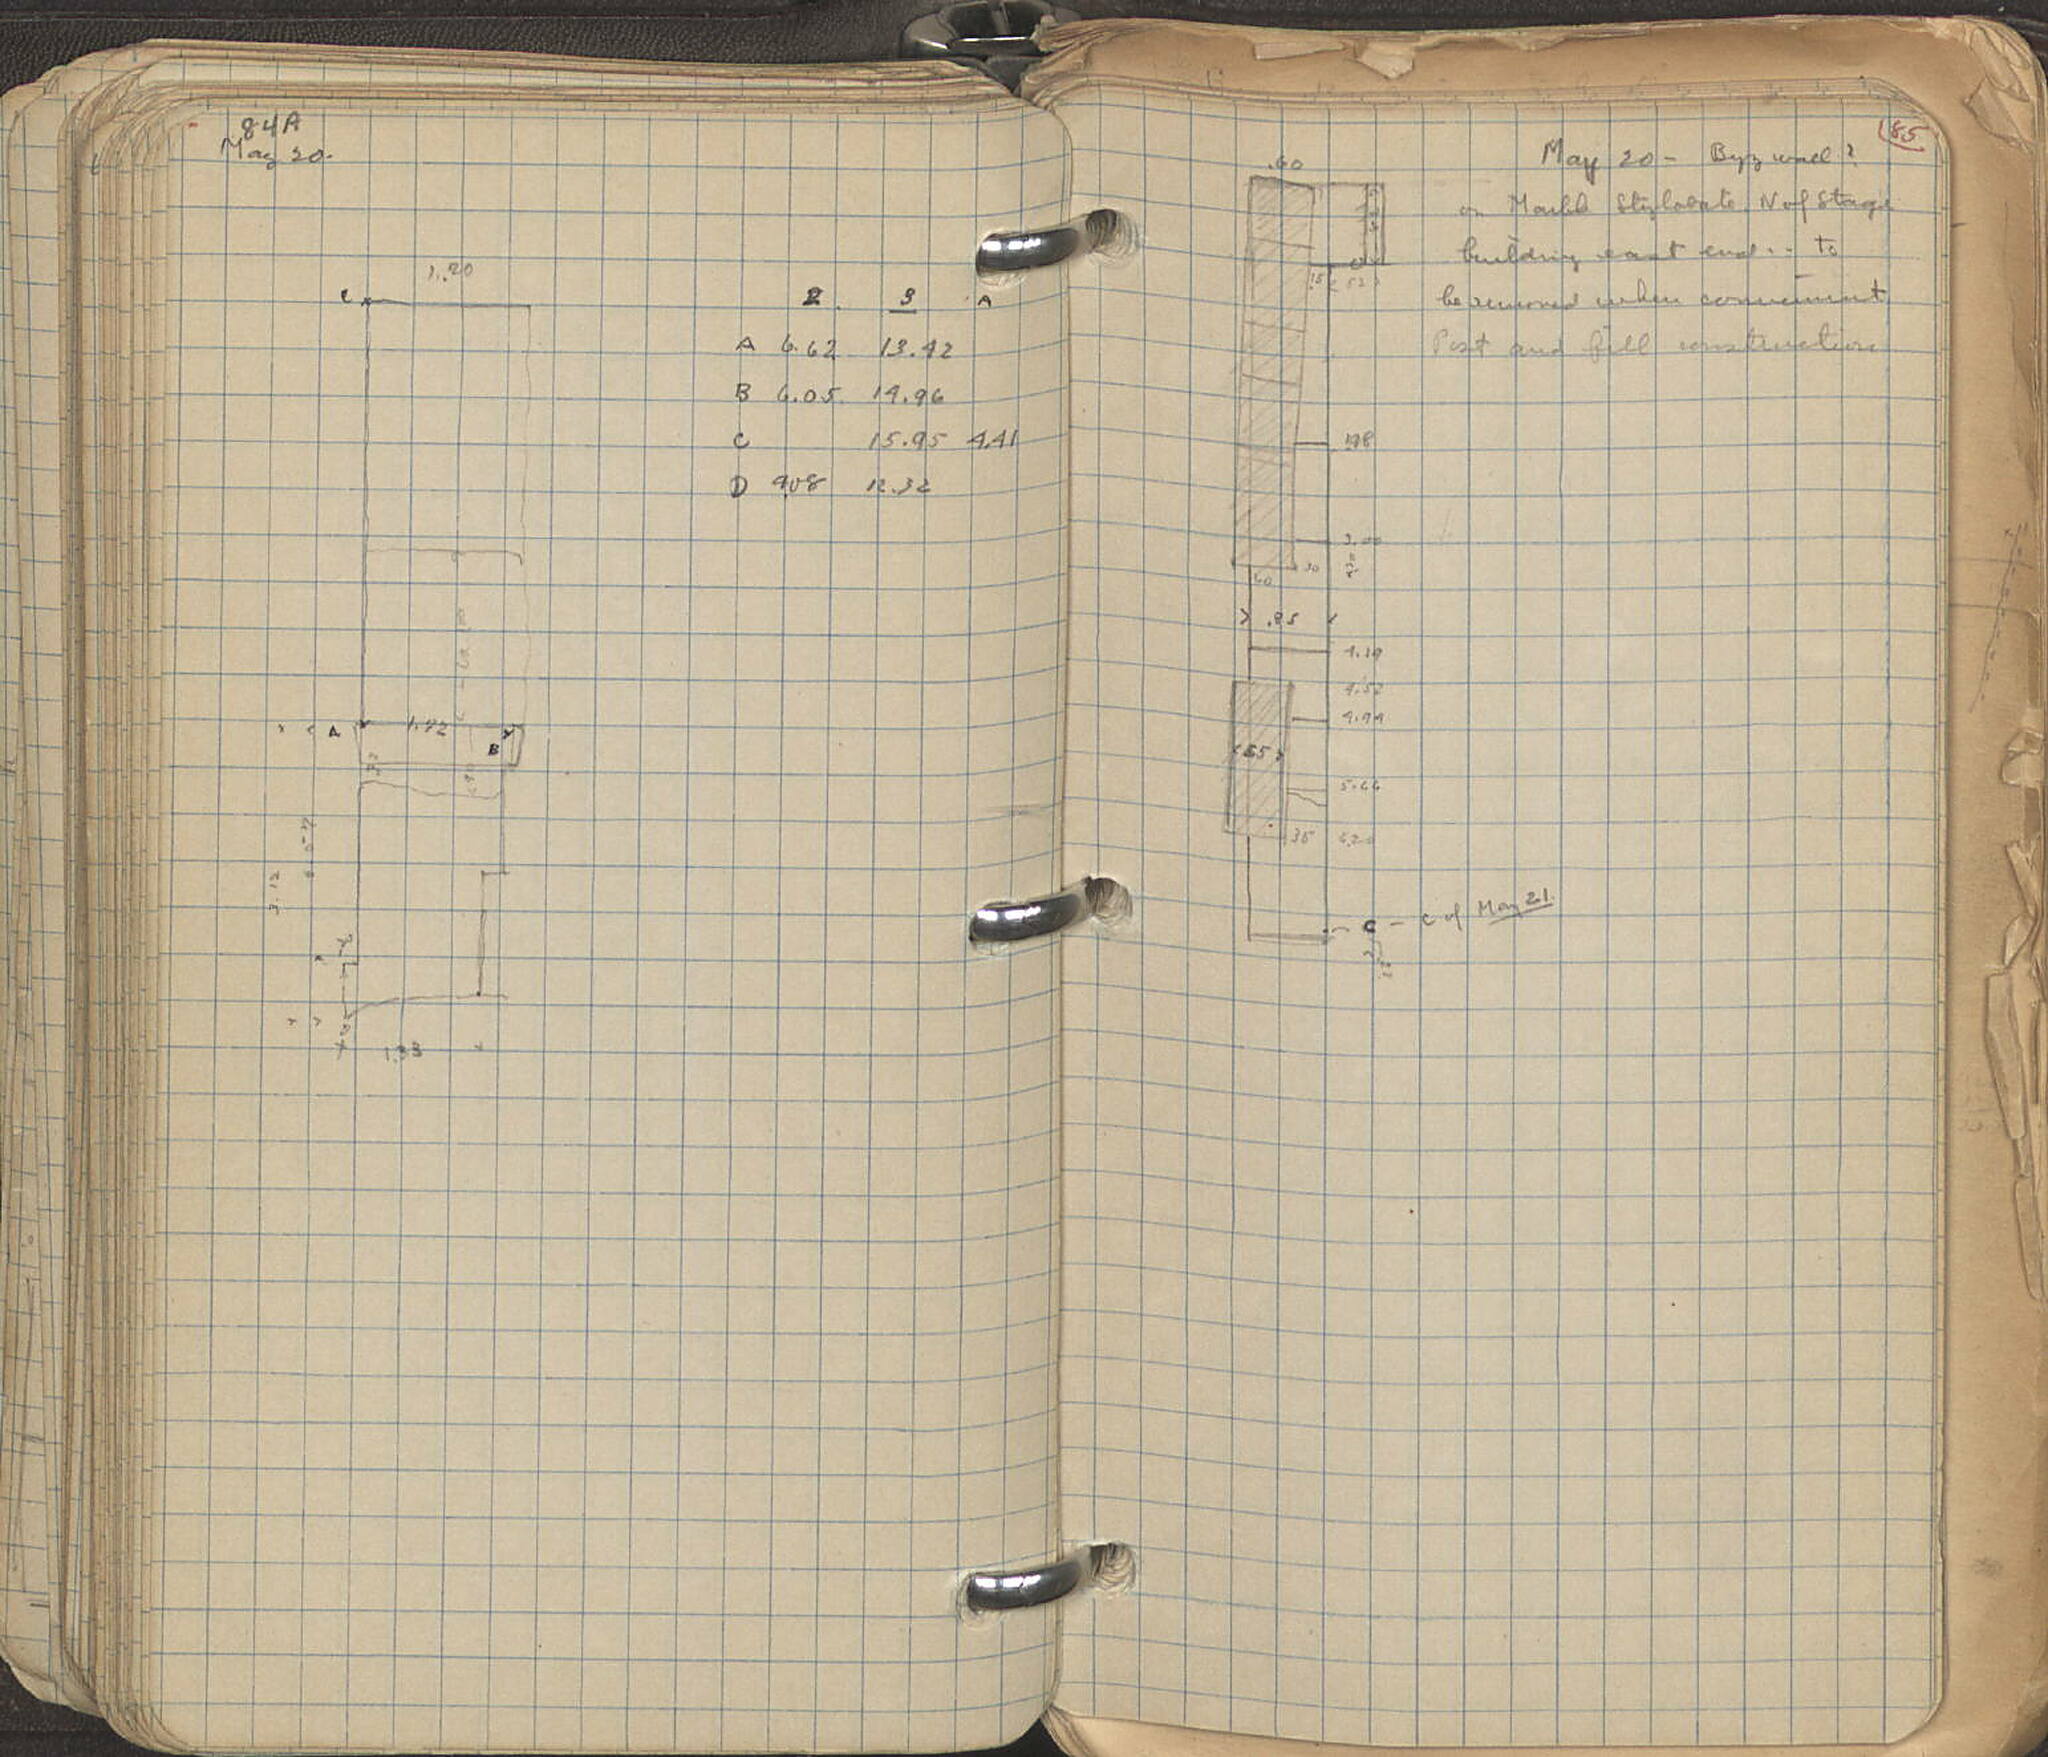 84A
May 20.
1.20
2. 3 A
A 6.62 13.42
B 6.05 14.96
C 15.95 4.41
D 908 12.32
A 1.42
B
3.12
1.33
85
May 20 - Byz wall?
on Marble Stylobate N of Stage
building east end.. to
be removed when convenient
Post and fill construction
.60
.15
52
3.00
30
60
.85
4.19
4.52
4.94
5.66
35 6.20
C - C of May 21.